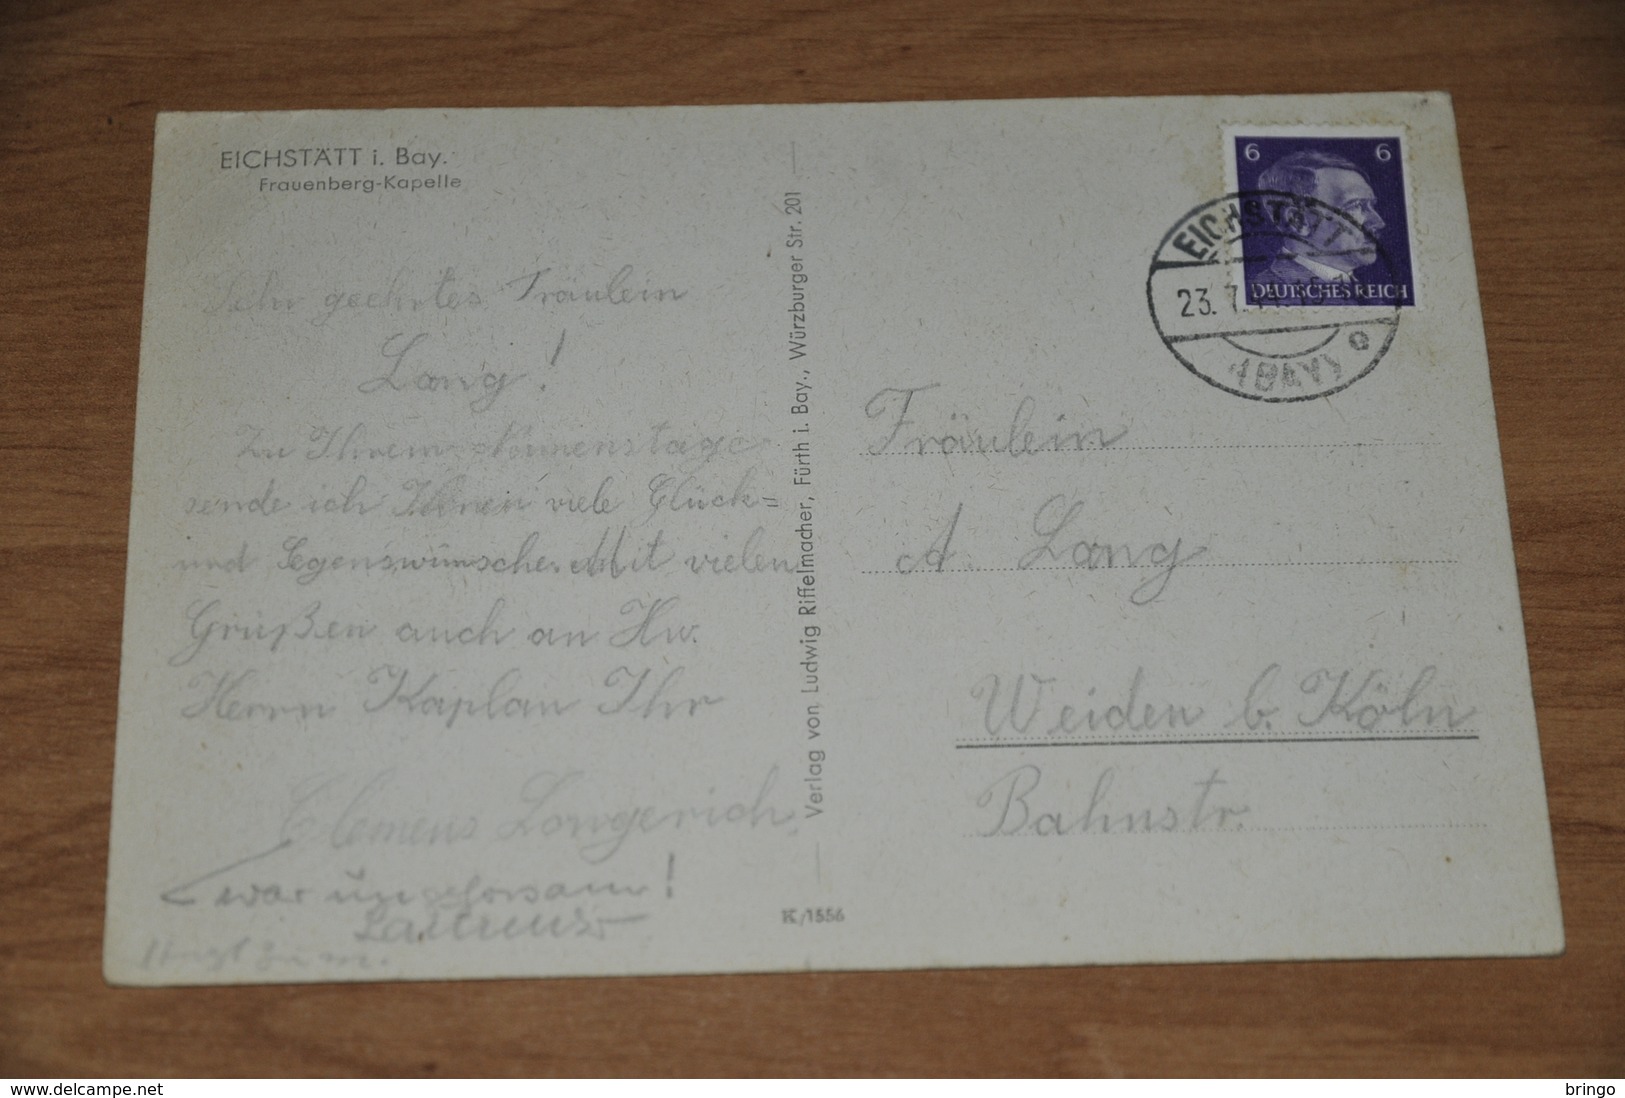 EICHSTÄTT i. Bay.
Frauenberg-Kapelle
Sehr geehrtes Fräulein
Lang!
Zu Ihrem Namenstage
sende ich Ihnen viele Glück=
und Segenswünsche. Mit vielen
Grüßen auch an Hw.
Herrn Kaplan Ihr
Clemens Longerich
war ungehorsam!
K/1556
Verlag von Ludwig Riffelmacher, Fürth i. Bay., Würzburger Str. 201
6 6
DEUTSCHES REICH
EICHSTÄTT
23. 7.
(BAY)
Fräulein
A. Lang
Weiden b. Köln
Bahnstr.
www.delcampe.net
bringo